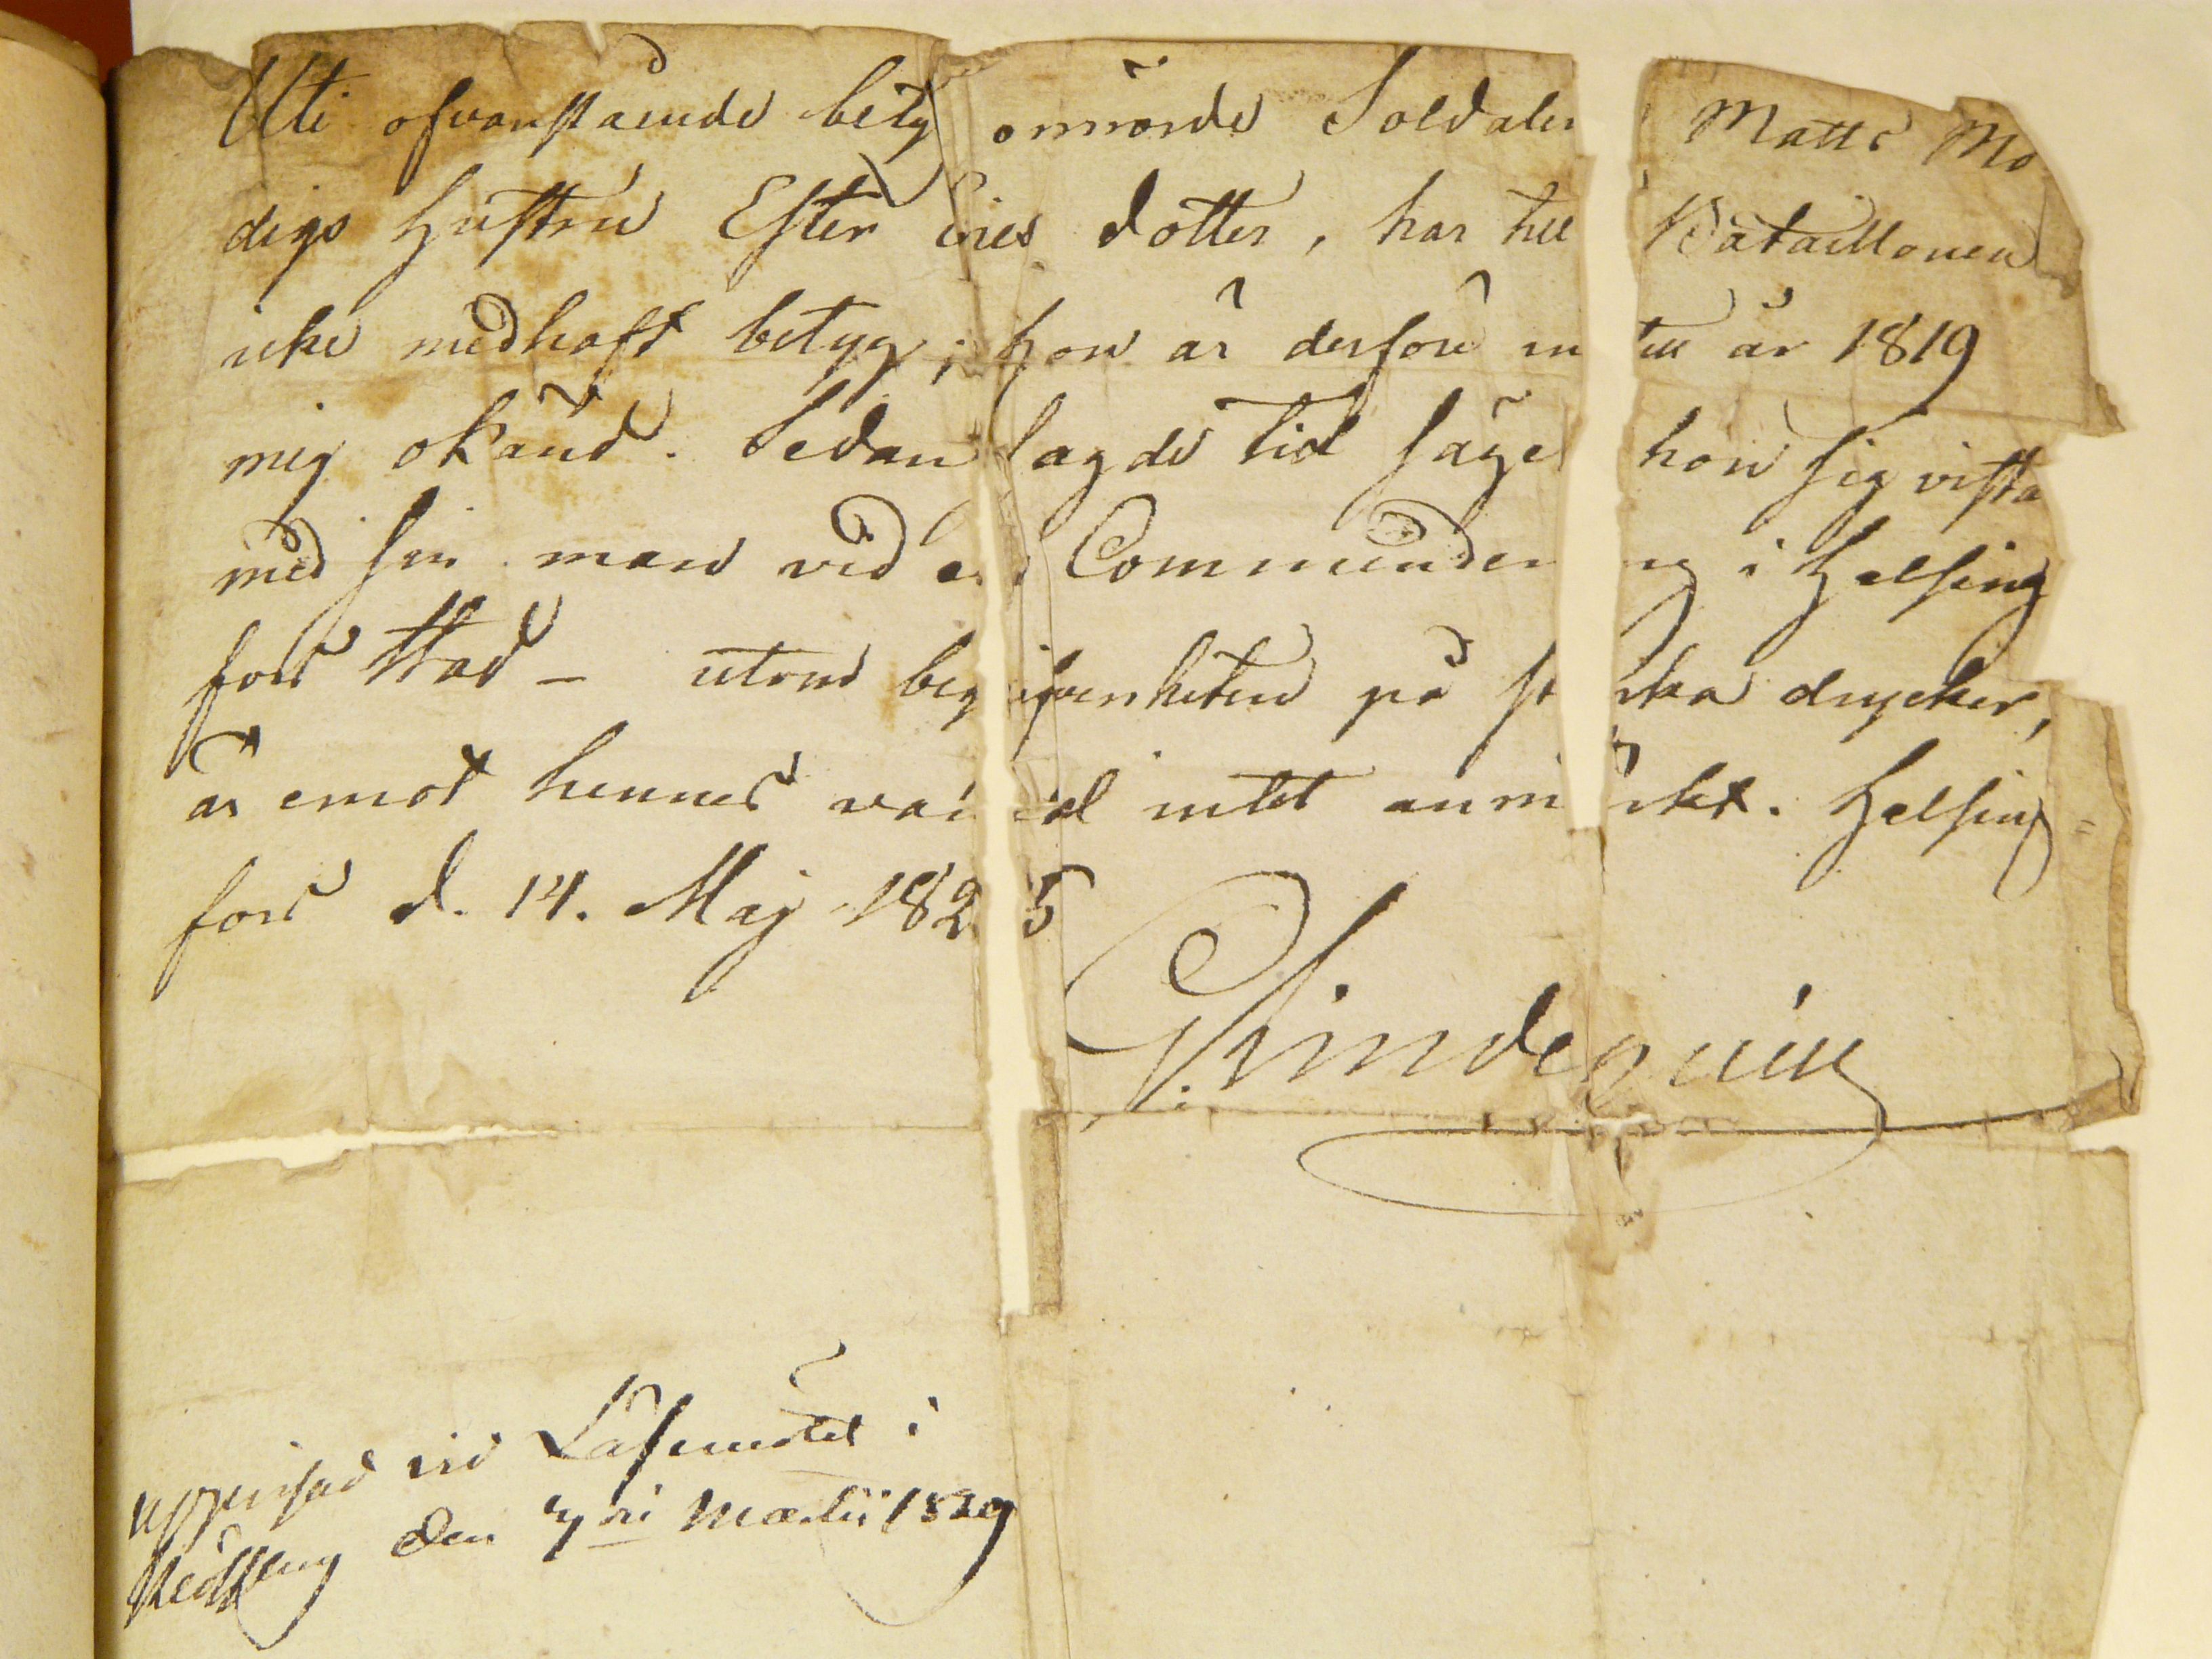 Uti ofvanstående betyg omrörde Soldaten Matts Mo
digs hustru Ester Erics dotter, har till Bataillonen
icke medhaft betyg; hon är derföre in till år 1819
mig okänd. Sedan sagde tid säger hon sig vista
med sin man vid en Commendering i Helsing
fors stad – utom begifvenheten på starka drycker,
är emot hennes vandel intet anmärkt. Helsing=
fors d. 14. Maj 1825
Lindequist
uppvisad vid Läsemötet i
den 7 de Martii 1829